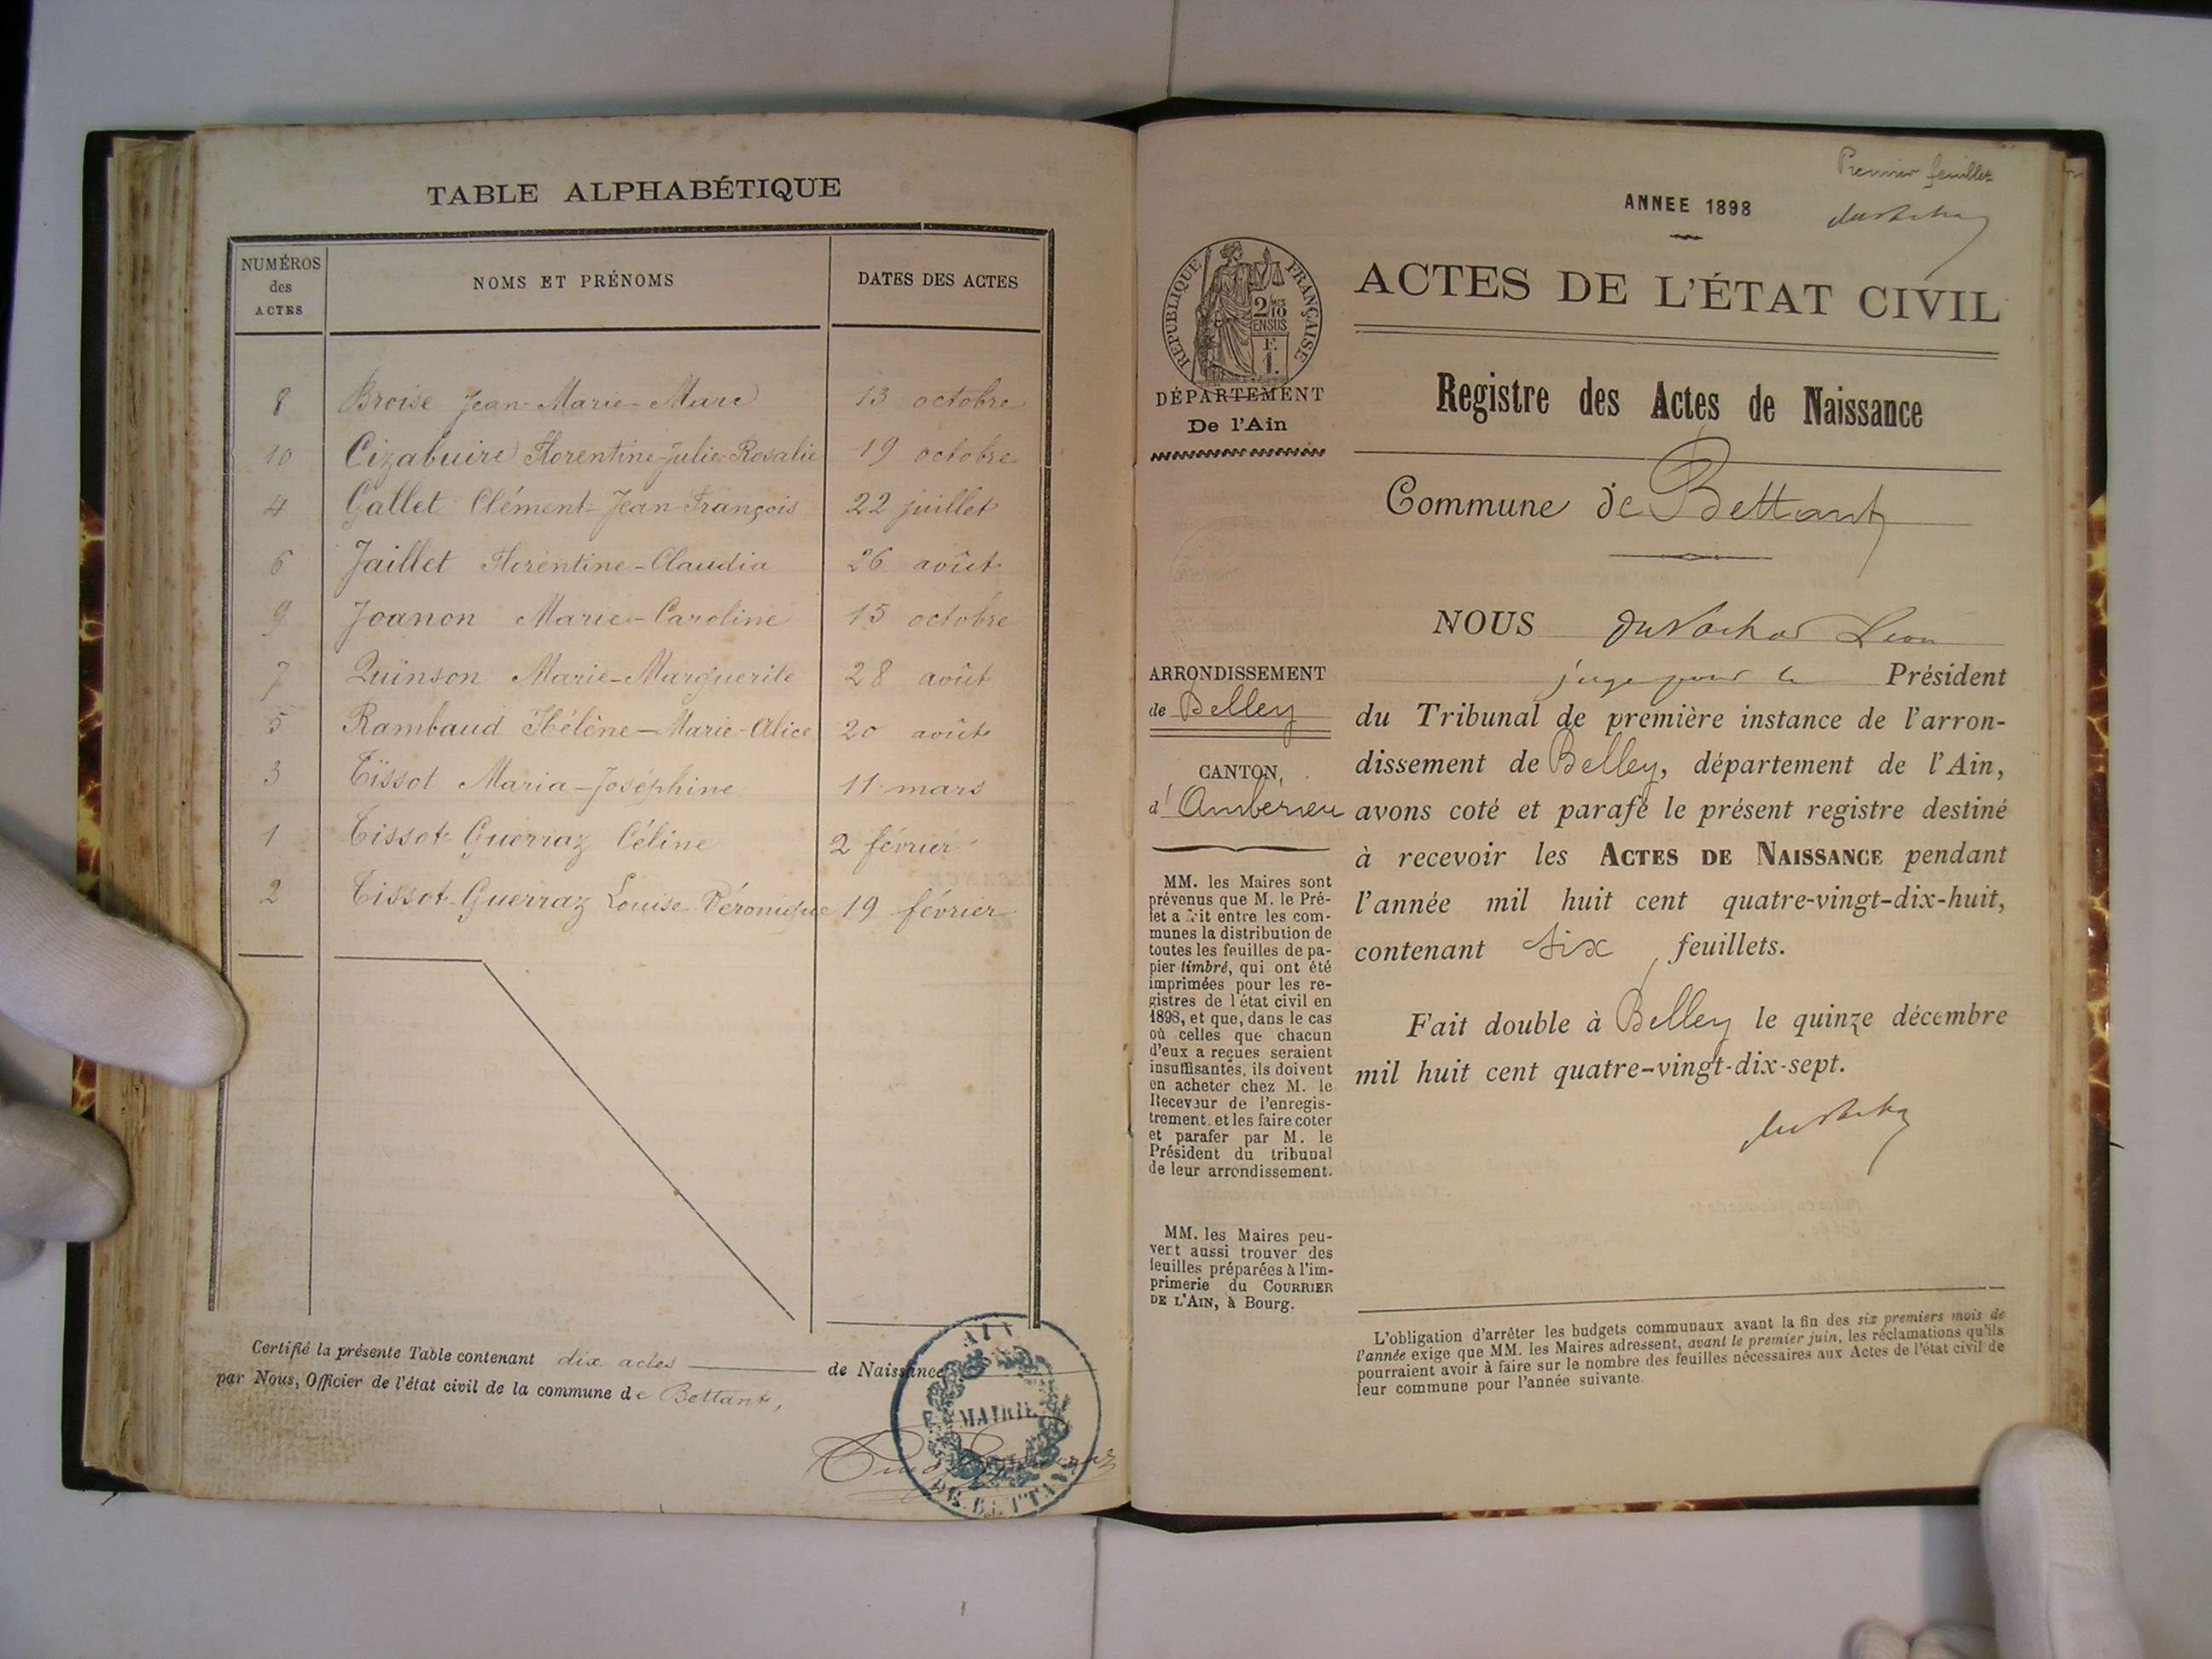 TABLE ALPHABÉTIQUE
NUMÉROS des ACTES
NOMS ET PRÉNOMS
DATES DES ACTES
8 Broise Jean-Marie-Marc 13 octobre
10 Cizabuire Florentine-Julie-Rosalie 19 octobre
4 Gallet Clément-Jean-François 22 juillet
6 Jaillet Florentine-Claudia 26 août
9 Joanon Marie-Caroline 15 octobre
7 Quinson Marie-Marguerite 28 août
5 Rambaud Hélène-Marie-Alice 20 août
3 Tissot Maria-Joséphine 11 mars
1 Tissot-Guerraz Céline 2 février
2 Tissot-Guerraz Louise-Véronique 19 février
Certifié la présente Table contenant dix actes de Naissance
par Nous, Officier de l'état civil de la commune de Bettant,
AIN
MAIRIE
DE BETTANT
Premier feuillet
ANNEE 1898
REPUBLIQUE FRANÇAISE
2/10
EN SUS
F.
1.
DÉPARTEMENT
De l'Ain
ACTES DE L'ÉTAT CIVIL
Registre des Actes de Naissance
Commune de Bettant
ARRONDISSEMENT
de Belley
CANTON
d'Amberieu
MM. les Maires sont
prévenus que M. le Pré-
fet a fait entre les com-
munes la distribution de
toutes les feuilles de pa-
pier timbré, qui ont été
imprimées pour les re-
gistres de l'état civil en
1898, et que, dans le cas
où celles que chacun
d'eux a reçues seraient
insuffisantes, ils doivent
en acheter chez M. le
Receveur de l'enregis-
trement, et les faire coter
et parafer par M. le
Président du tribunal
de leur arrondissement.
MM. les Maires peu-
vent aussi trouver des
feuilles préparées à l'im-
primerie du COURRIER
DE L'AIN, à Bourg.
NOUS Léon
juge pour le Président
du Tribunal de première instance de l'arron-
dissement de Belley, département de l'Ain,
avons coté et parafé le présent registre destiné
à recevoir les ACTES DE NAISSANCE pendant
l'année mil huit cent quatre-vingt-dix-huit,
contenant six feuillets.
Fait double à Belley le quinze décembre
mil huit cent quatre-vingt-dix-sept.
L'obligation d'arrêter les budgets communaux avant la fin des six premiers mois de
l'année exige que MM. les Maires adressent, avant le premier juin, les réclamations qu'ils
pourraient avoir à faire sur le nombre des feuilles nécessaires aux Actes de l'état civil de
leur commune pour l'année suivante.